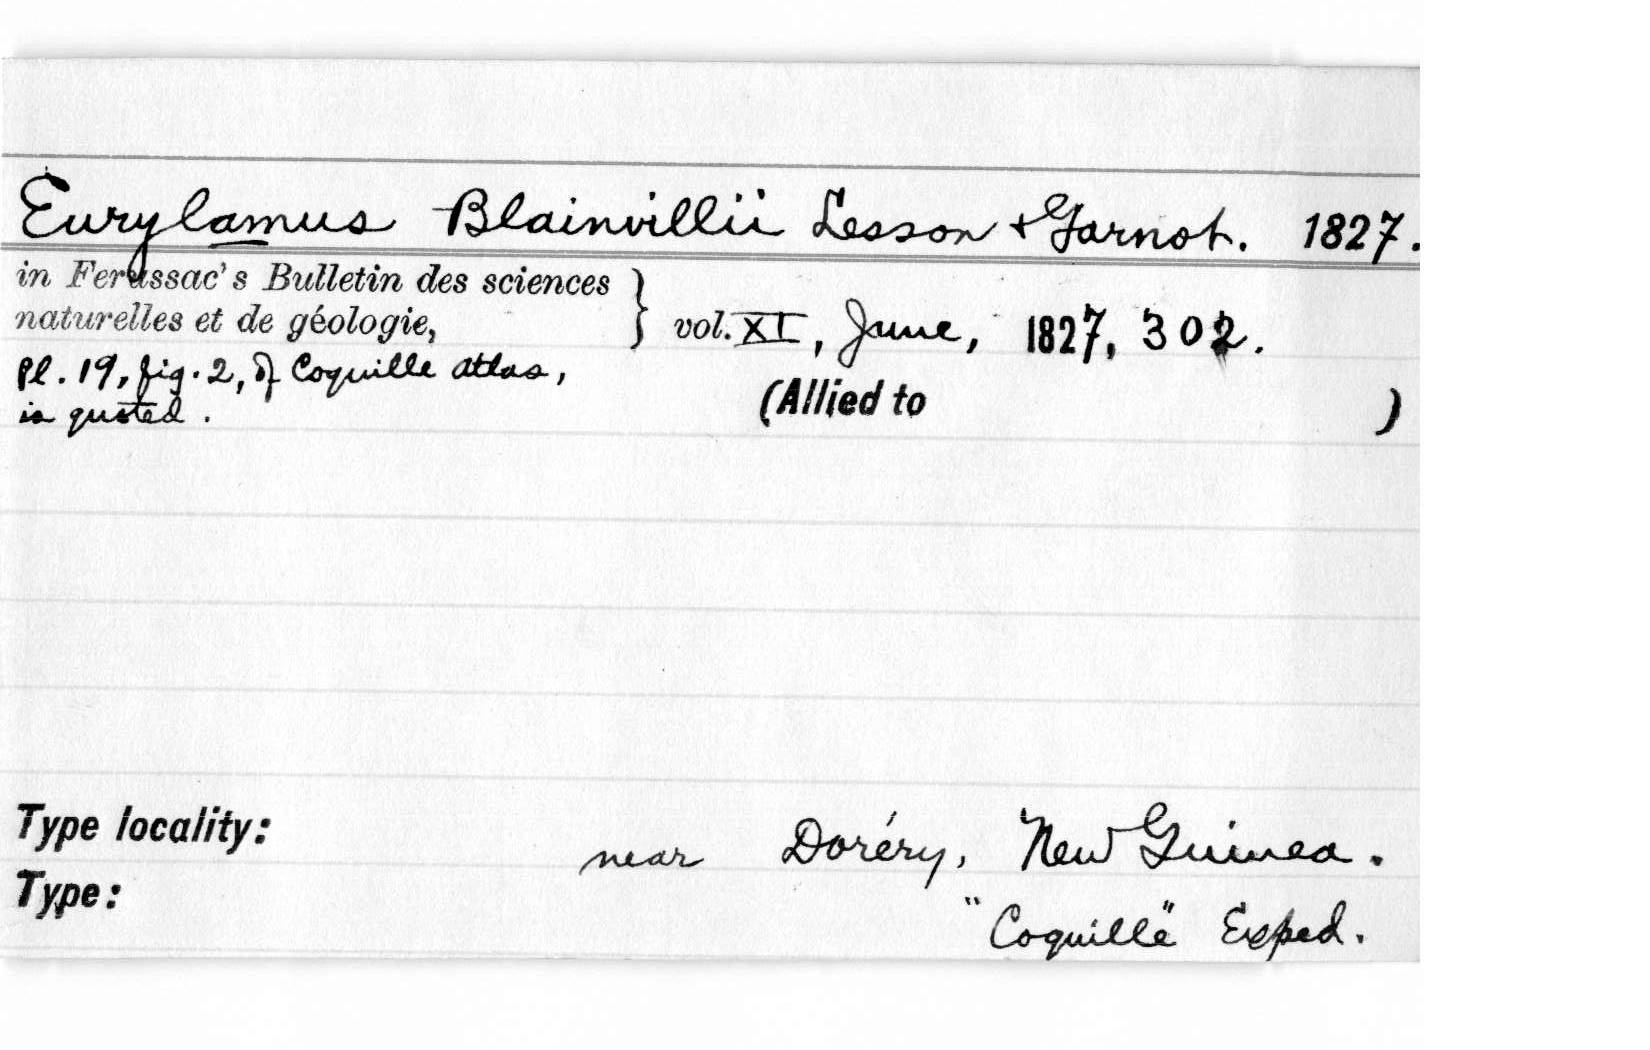 Eurylamus Blainvillii Lesson + Garnot. 1827.
in Ferussac's Bulletin des sciences
naturelles et de géologie, } vol. XI, June, 1827, 302.
pl. 19, fig. 2, of Coquille atlas,
is quoted.
(Allied to )
Type locality: near Doréry, New Guinea.
Type: "Coquille" Exped.